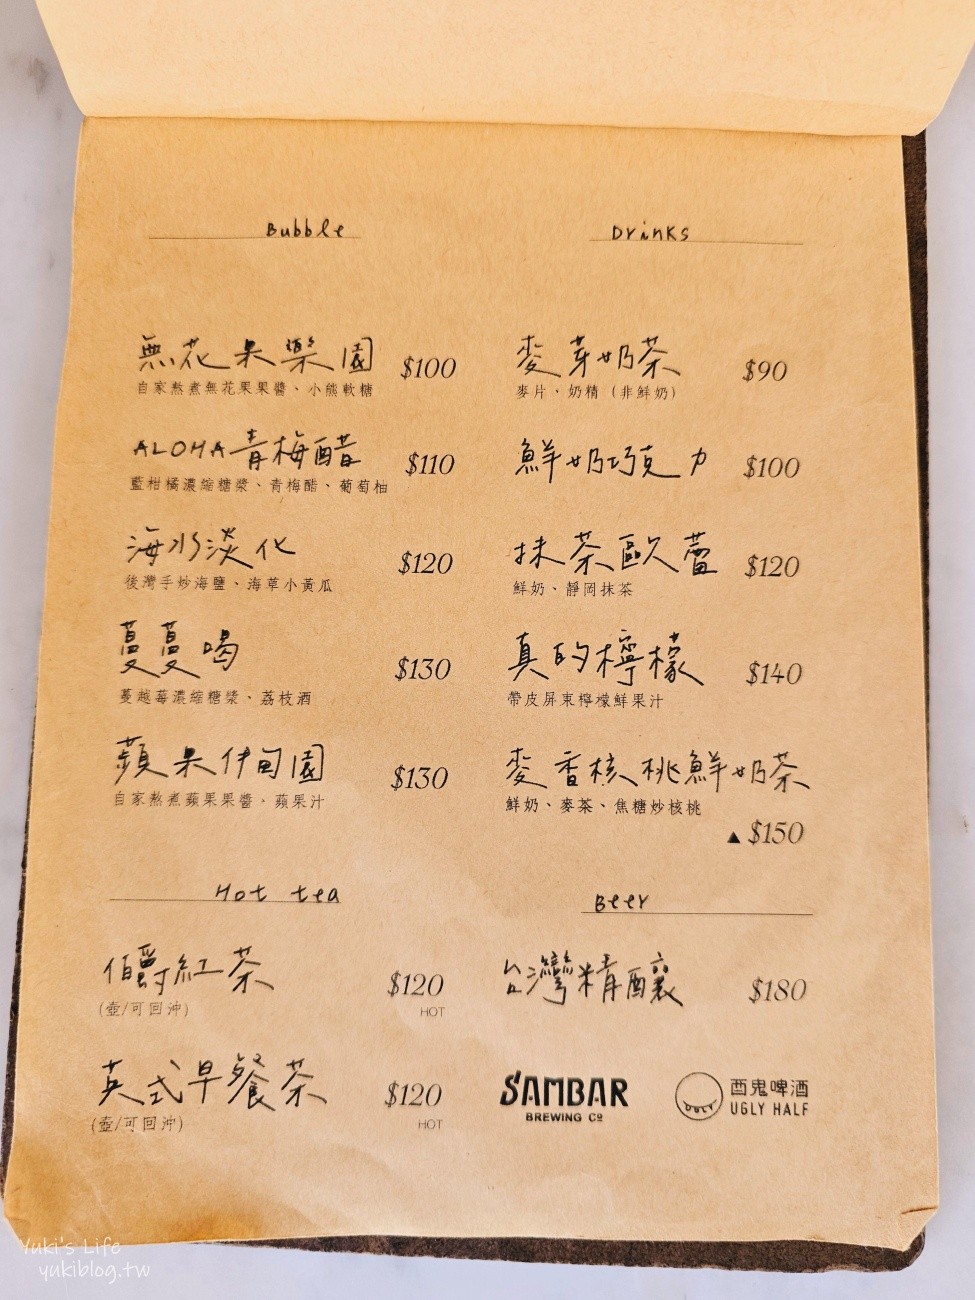 Bubble
無花果樂園 $100
自家熬煮無花果果醬、小熊軟糖
ALOHA青梅醋 $110
藍柑橘濃縮糖漿、青梅醋、葡萄柚
海水淡化 $120
後灣手炒海鹽、海草小黃瓜
蔓蔓喝 $130
蔓越莓濃縮糖漿、荔枝酒
蘋果伊甸園 $130
自家熬煮蘋果果醬，蘋果汁
Drinks
麥芽奶茶 $90
麥片、奶精（非鮮奶）
鮮奶巧克力 $100
抹茶歐蕾 $120
鮮奶、靜岡抹茶
真的檸檬 $140
帶皮屏東檸檬鮮果汁
麥香核桃鮮奶茶
鮮奶、麥茶、焦糖炒核桃
▲ $150
Hot tea
伯爵紅茶 $120
(壺/可回沖) HOT
英式早餐茶 $120
(壺/可回沖) HOT
Beer
台灣精釀 $180
SAMBAR
BREWING Cº
UGLY
酉鬼啤酒
UGLY HALF
Yuki's Life
yukiblog.tw